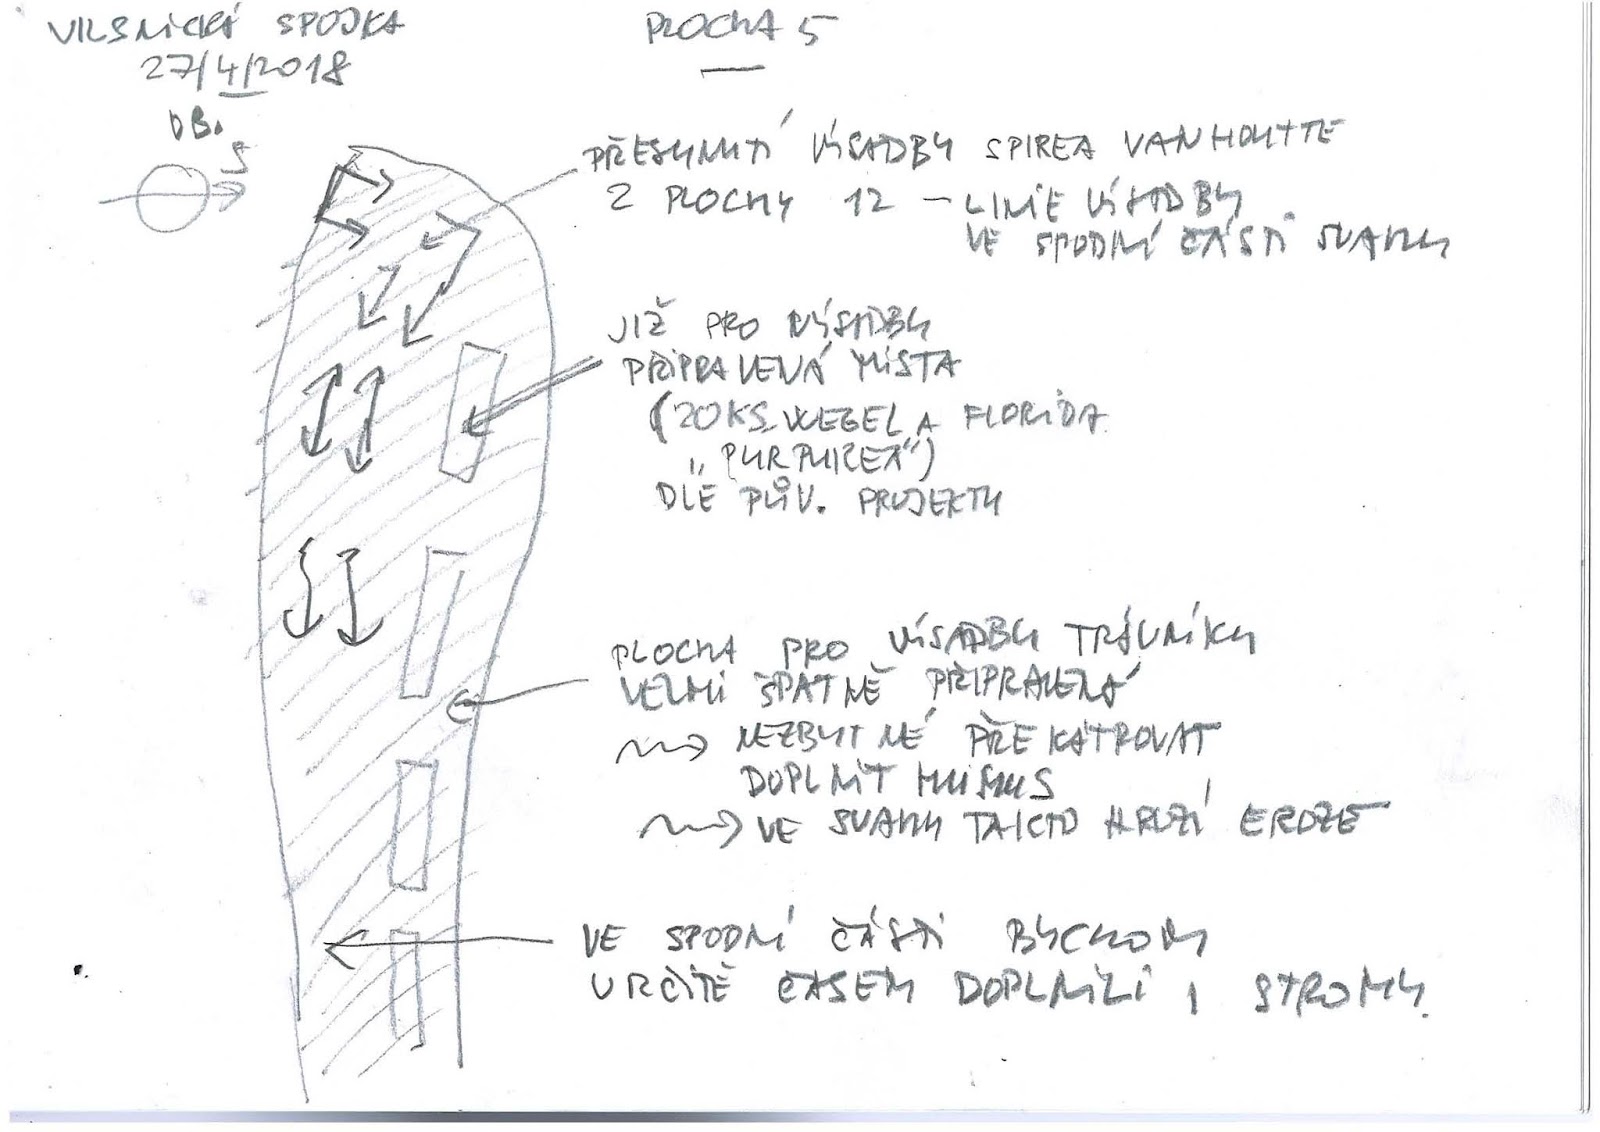 VILSNICKÁ SPOJKA
27/4/2018
DB.
S
PLOCHA 5
PŘESUNUTÍ VÝSADBY SPIREA VANHOUTTE
Z PLOCHY 12 – LINIE VÝSADBY
VE SPODNÍ ČÁSTI SVAHU
JIŽ PRO VÝSADBU
PŘIPRAVENÁ MÍSTA
(20KS WEGELA FLORIDA
„PURPUREA")
DLE PŮV. PROJEKTU
PLOCHA PRO VÝSADBU TRÁVNÍKU
VELMI ŠPATNĚ PŘIPRAVENÁ
NEZBYTNÉ PŘEKÁTROVAT
DOPLNIT HUMUS
VE SVAHU TAKTO HROZÍ EROZE
VE SPODNÍ ČÁSTI BYCHOM
URČITĚ ČASEM DOPLNILI I STROMY.